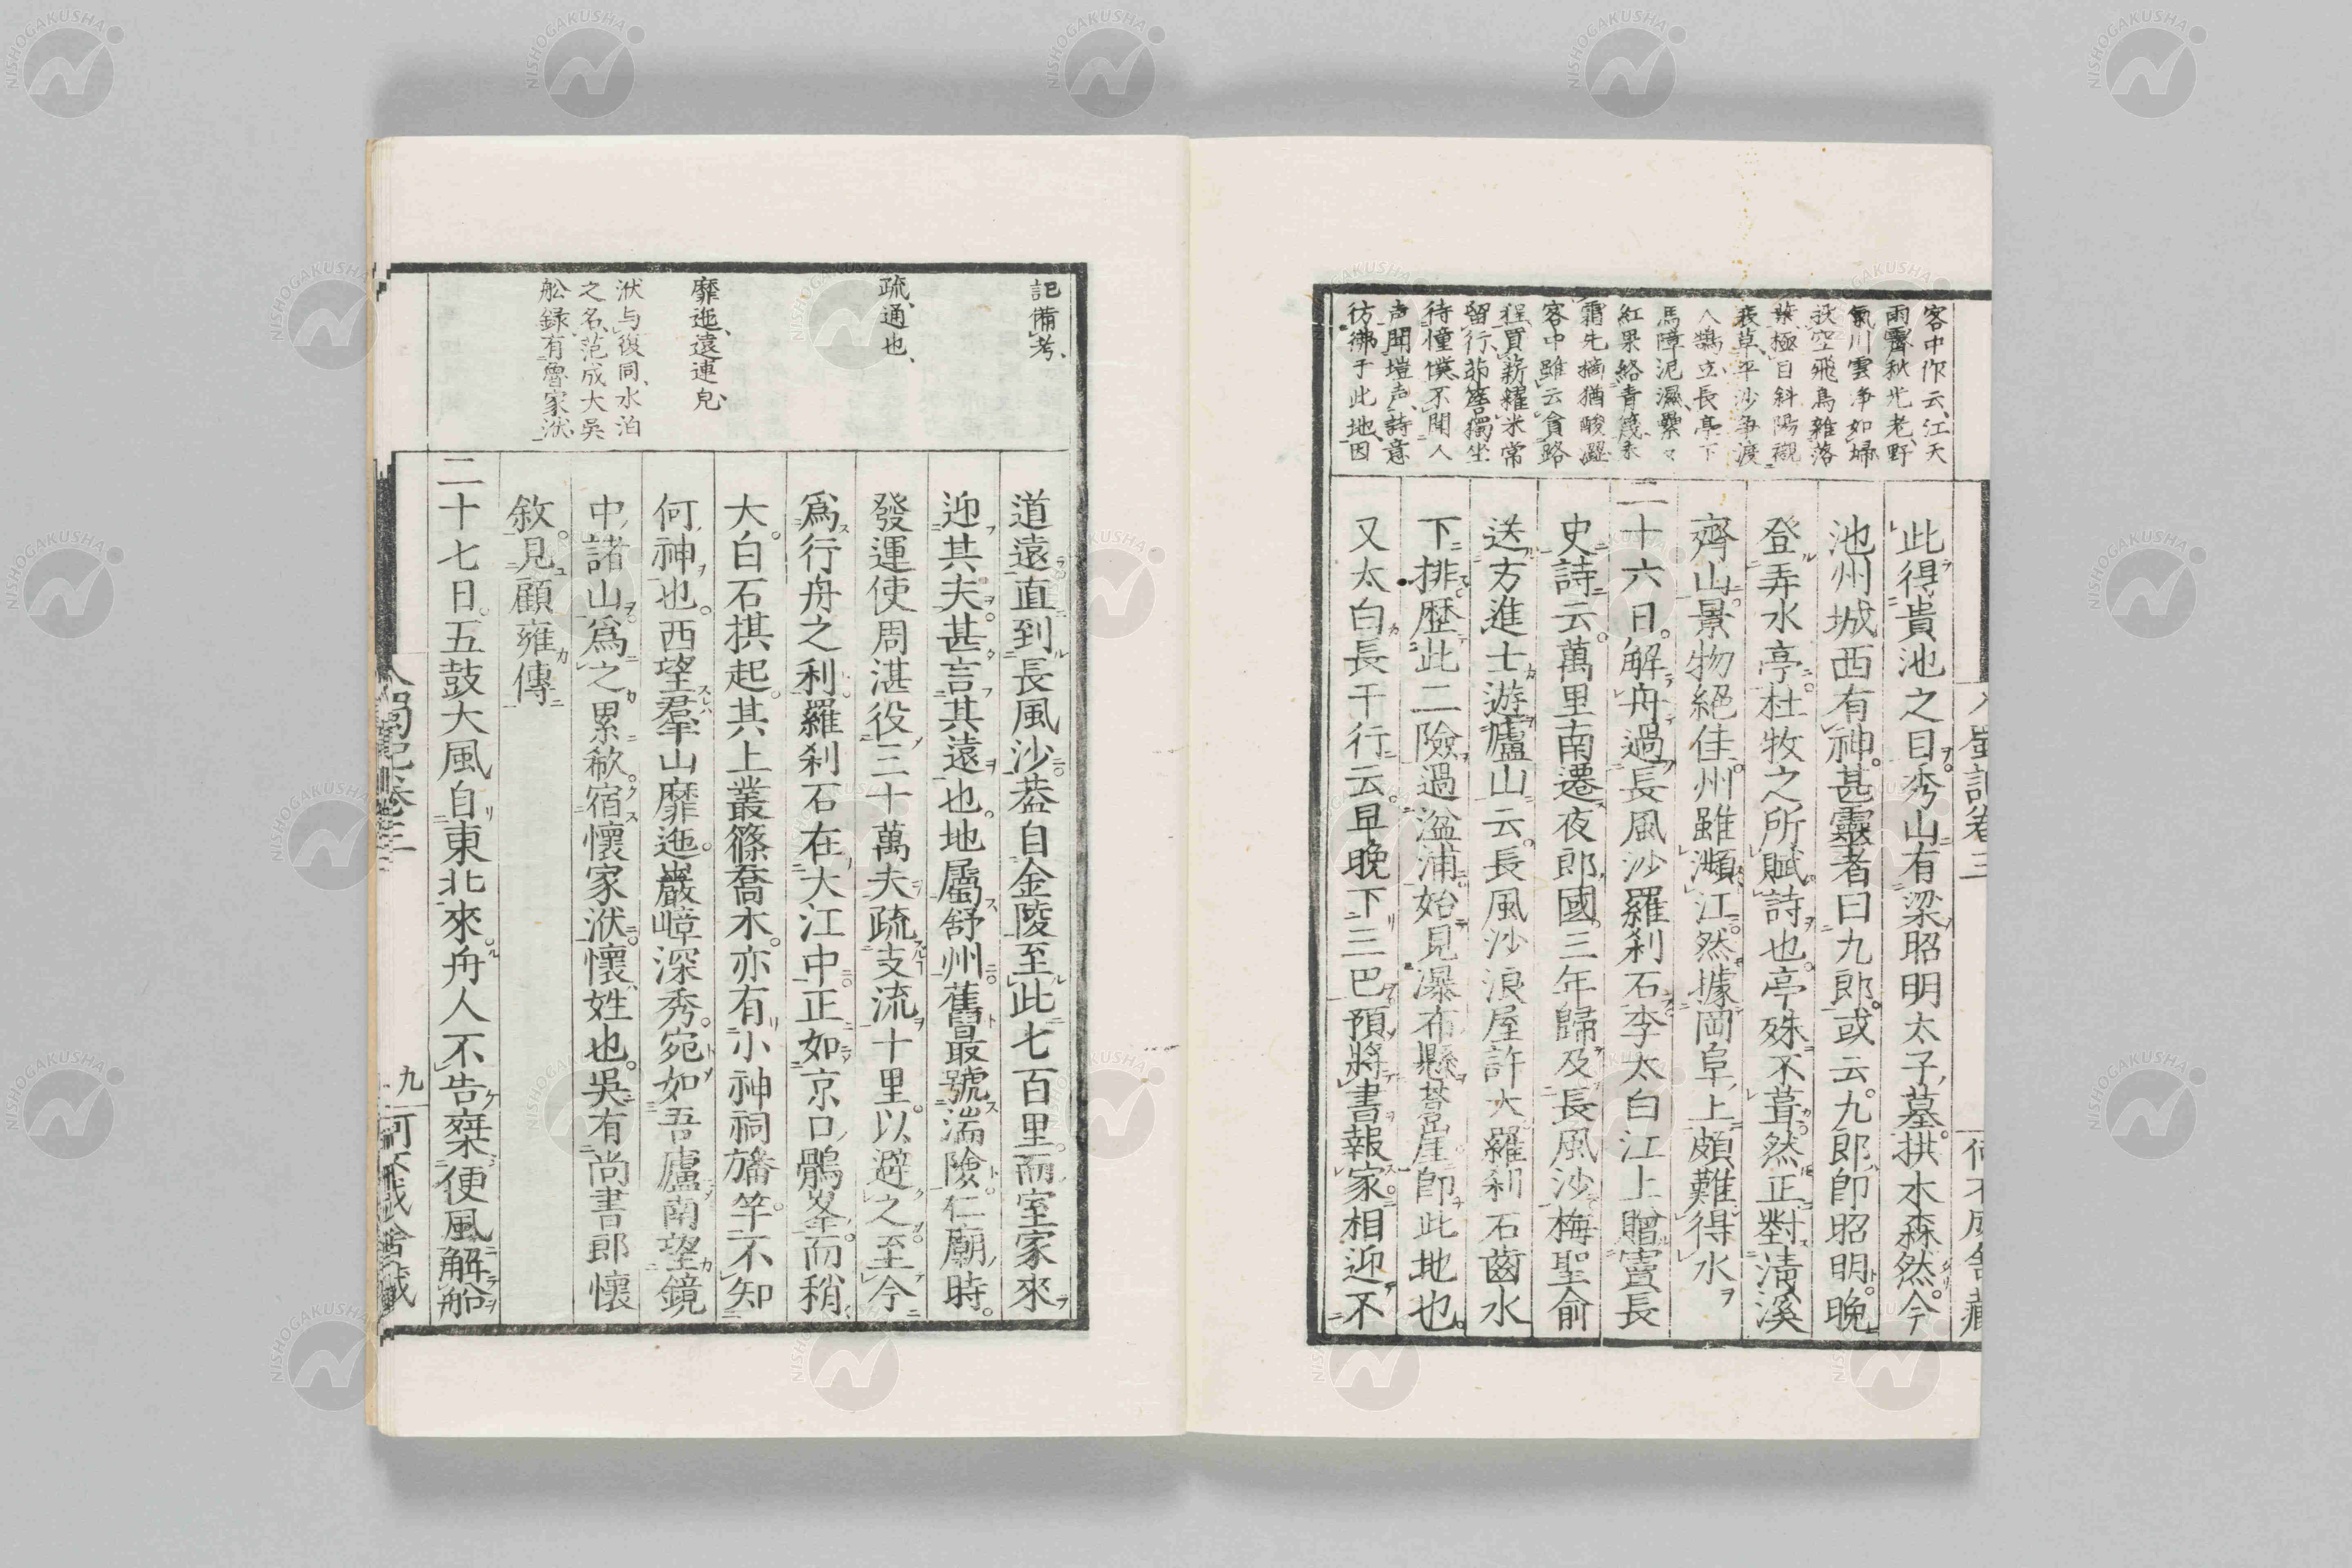 客中作云、江天
雨霽秋光老、野
氣川雲淨如掃
投空飛鳥雜落
葉極目斜陽襯
衰草、平沙爭渡
人鵠立、長亭下
馬障泥濕、纍々
紅果絡青篾、未
霜先摘猶酸澀
客中雖云貪路
程、買薪糴米常
留行、菲簷獨坐
待憧僕、不聞人
声聞塏声、詩意
彷彿于此地、因
此得貴池之曰秀山有梁昭明太子墓拱木森然今
池州城西有神甚靈者曰九郎或云九郎卽昭明晚
登弄水亭杜牧之所賦詩也亭殊不葺然正對清溪
齊山景物絕佳州雖瀕江然據岡阜上頗難得水
二十六日解舟過長風沙羅刹石李太白江上贈竇長
史詩云萬里南遷夜郎國三年歸及長風沙梅聖俞
送方進士遊廬山云長風沙浪屋許大羅刹石齒水
下排歷此二險過湓浦始見瀑布懸蒼崖卽此地也
又太白長干行云早晚下三巴預將書報家相迎不
入蜀記卷三
記備考、
疏、通也、
靡迤、遠連皃、
洑与復同、水泊
之名、范成大吳
舩録有魯家洑、
道遠直到長風沙葢自金陵至此七百里而室家來
迎其夫甚言其遠也地屬舒州舊最號湍險仁廟時
發運使周湛役三十萬夫疏支流十里以避之至今
爲行舟之利羅刹石在大江中正如京口鶻峯而稍
大白石拱起其上叢篠喬木亦有小神祠旛竿不知
何神也西望羣山靡迤巖嶂深秀宛如吾廬南望鏡
中諸山爲之累欷宿懷家洑懷姓也吳有尚書郎懷
敘見顧雍傳
二十七日五鼓大風自東北來舟人不告椉便風解船
入蜀記卷三
九